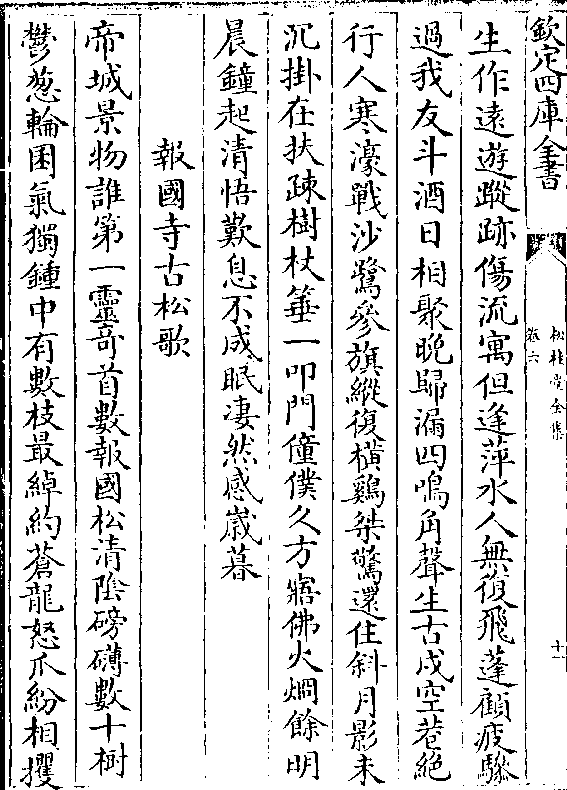 欽定四庫全書
松桂堂全集
卷六
十一
生作遠遊蹤跡傷流寓但逢萍水人無復飛蓬顧疲驂
過我友斗酒日相聚晚歸漏四鳴角聲生古戍空巷絶
行人寒濠戰沙鷺參旗縱復横鷄桀驚還住斜月影未
沉掛在扶疎樹杖箠一叩門僮僕久方寤佛火烱餘明
晨鐘起清悟歎息不成眠凄然感嵗暮
報國寺古松歌
帝城景物誰第一靈竒首數報國松清陰磅礴數十樹
鬱葱輪囷氣獨鍾中有數枝最綽約蒼龍怒爪紛相攫